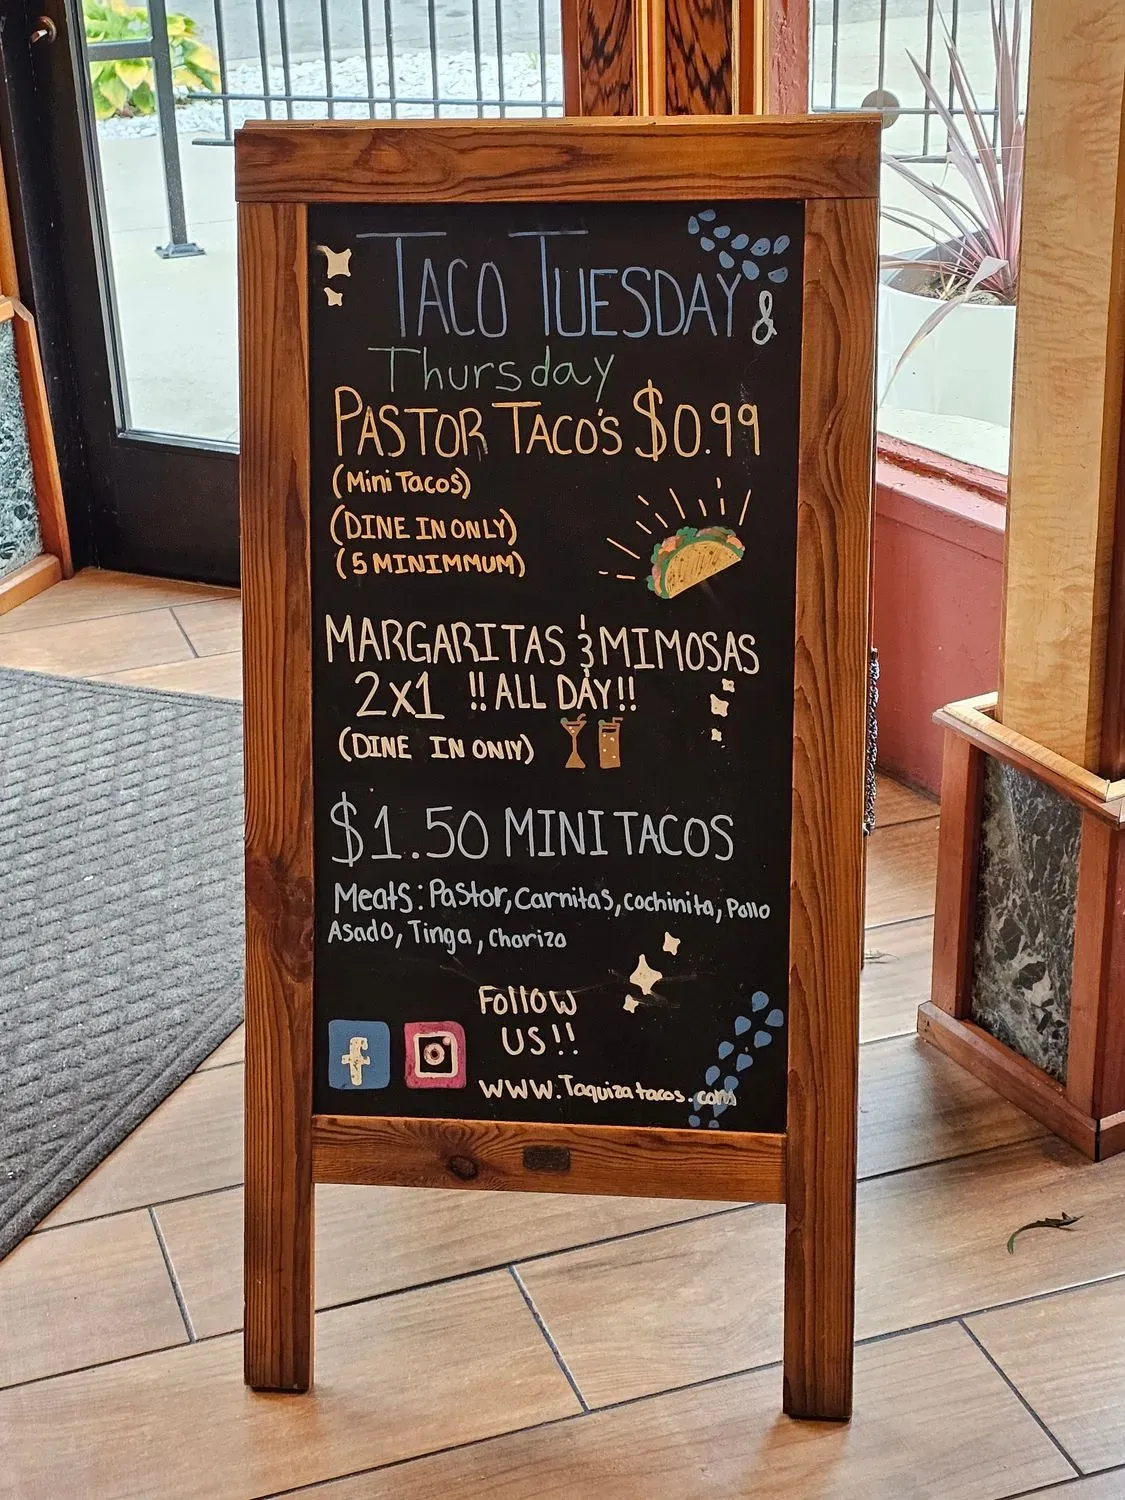 TACO TUESDAY &
Thursday
PASTOR TACO'S $0.99
(Mini Tacos)
(DINE IN ONLY)
(5 MINIMMUM)
MARGARITAS & MIMOSAS
2x1 !!ALL DAY!!
(DINE IN ONlY)
$1.50 MINI TACOS
Meats: Pastor, Carnitas, cochinita, Pollo
Asado, Tinga, Chorizo
Follow
US!!
f
www.Taquizatacos.com